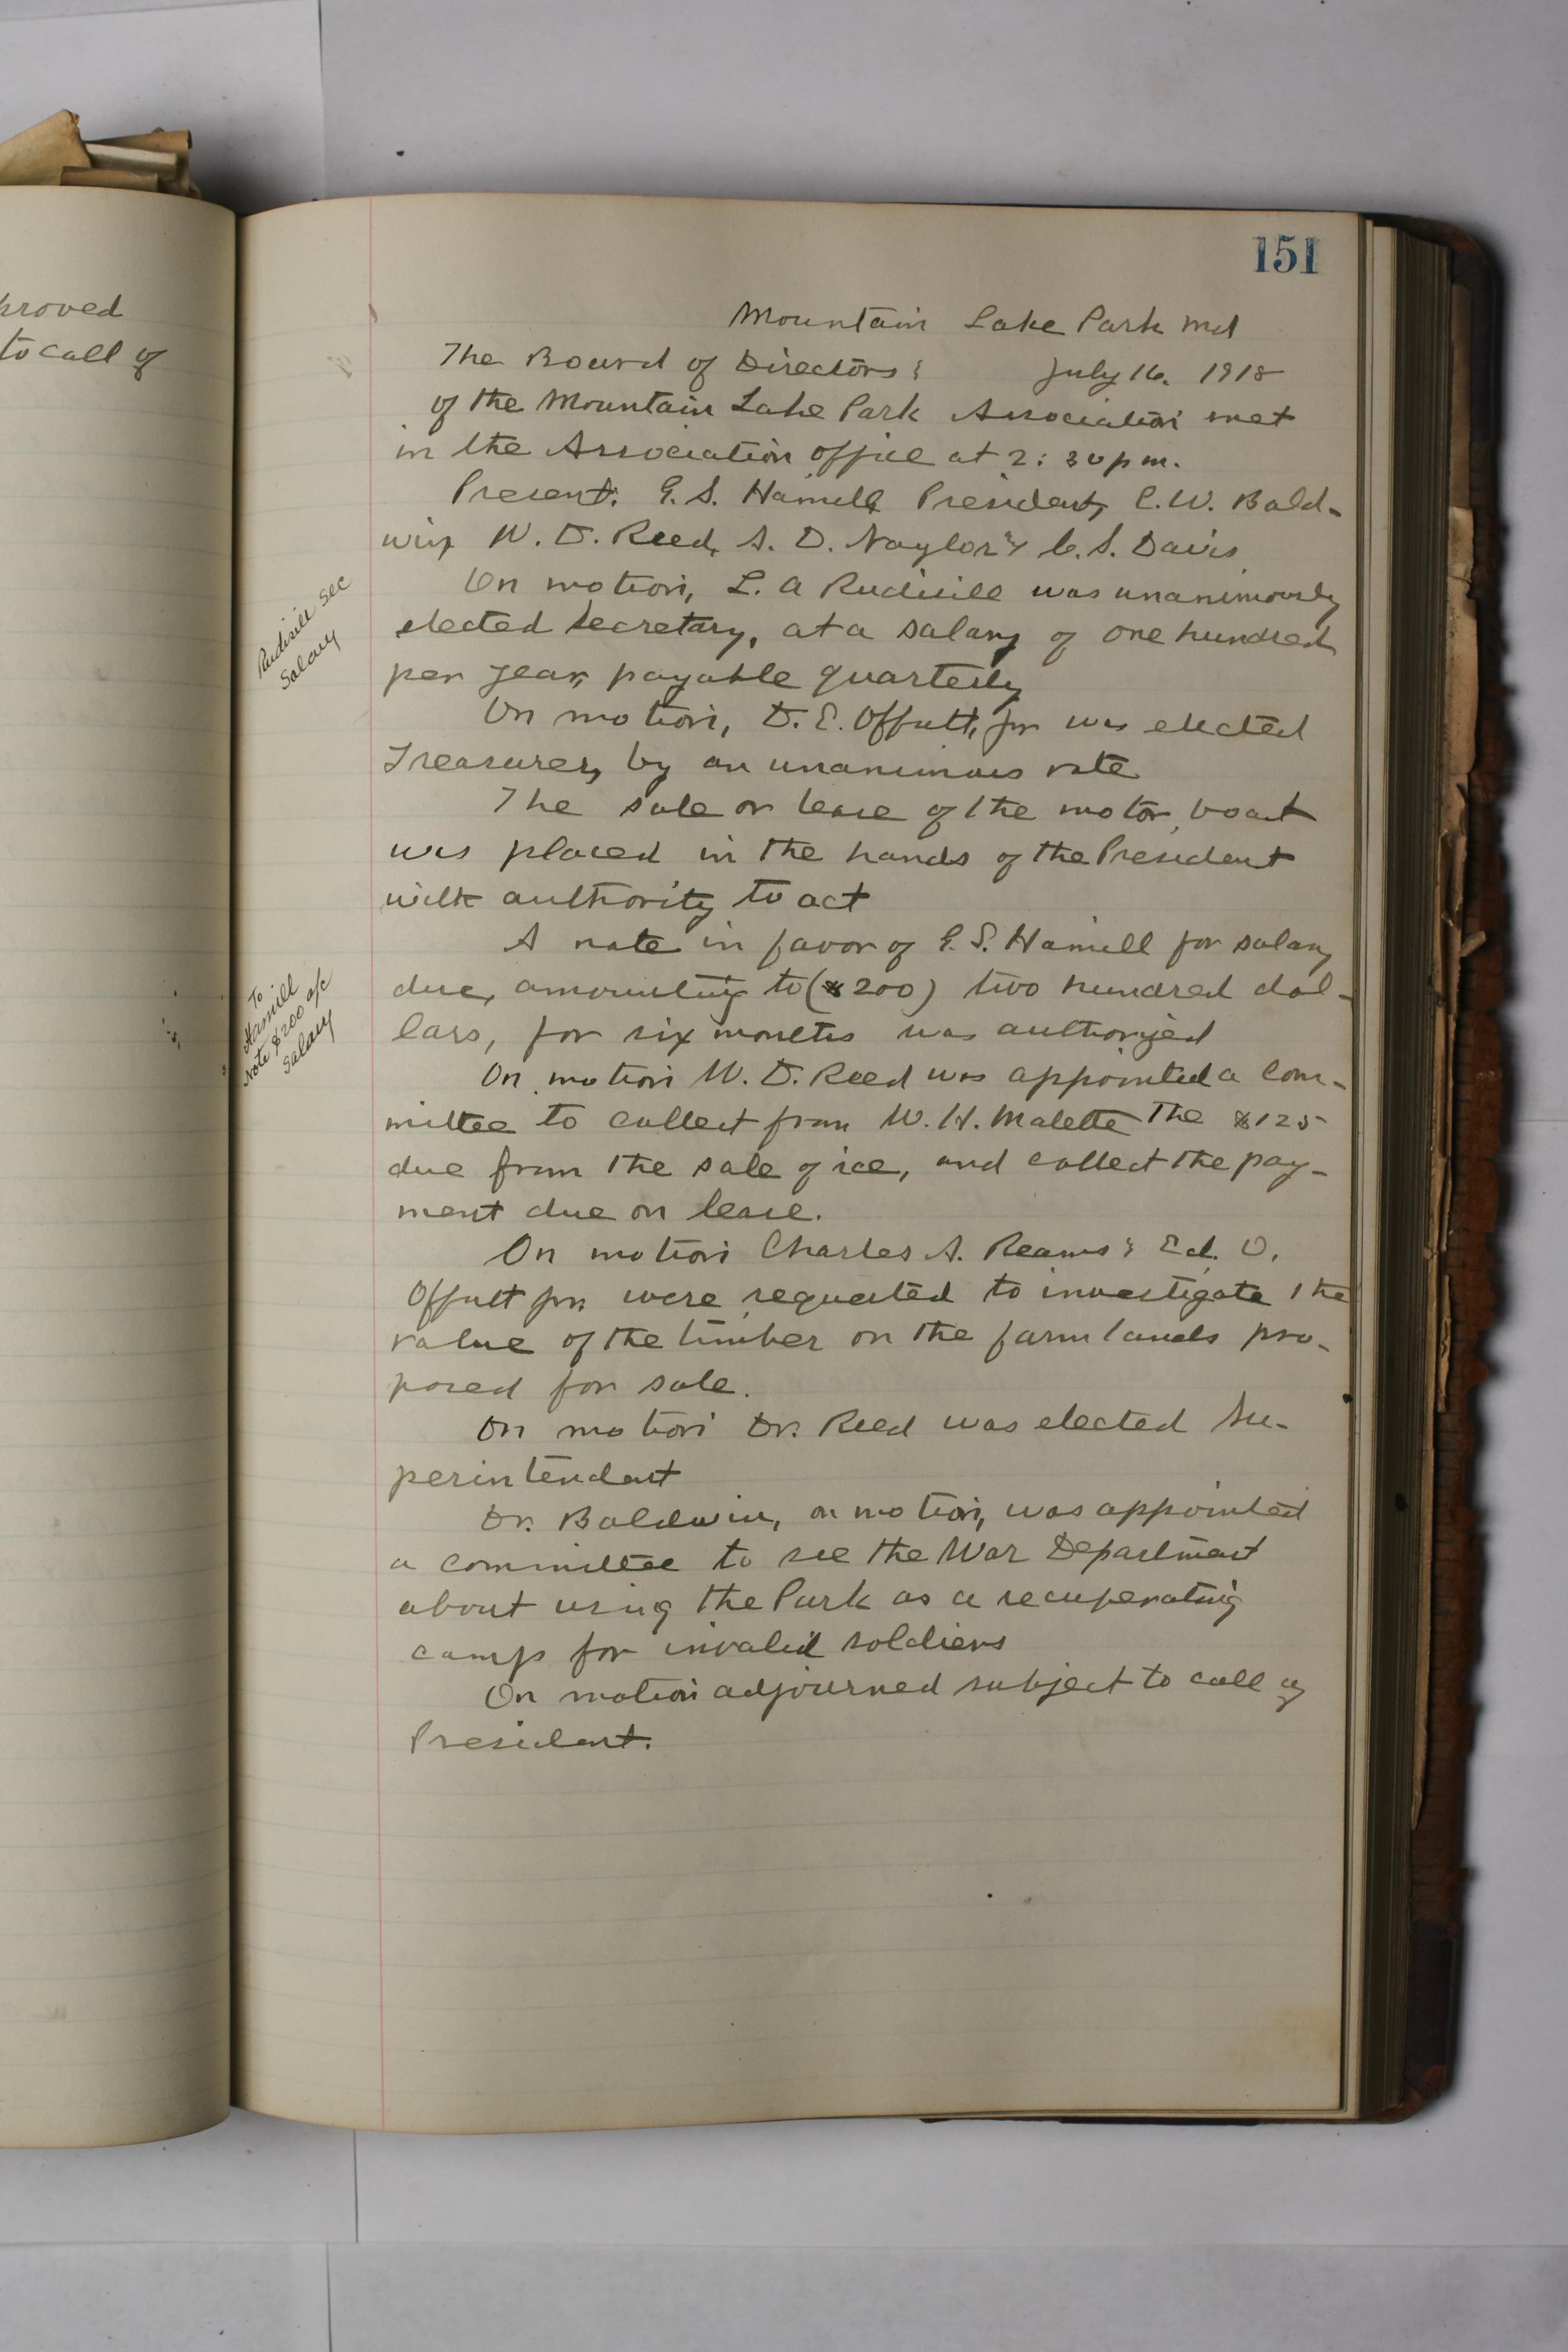 proved
to call of
151
Mountain Lake Park Md
The Board of Directors; July 16. 1918
of the Mountain Lake Park Association met
in the Association office at 2:30 pm.
Present: E. S. Hamill President, C. W. Bald-
win W. D. Reed, S. D. Naylor & C. S. Davis
On motion, L. A Rudisill was unanimously
Rudisill Sec
Salary
elected Secretary, at a salary of one hundred
per year, payable quarterly
On motion, D. E. Offutt, jnr was elected
Treasurer, by an unanimous vote
The sale or lease of the motor boat
was placed in the hands of the President
with authority to act
A note in favor of E. S. Hamill for salary
To
Hamill
Note $200 a/c
Salary
due, amounting to ($200) two hundred dol-
lars, for six months was authorized
On motion W. D. Reed was appointed a com-
mittee to collect from W. H. Malette the $125
due from the sale of ice, and collect the pay-
ment due on lease.
On motion Charles A. Reams & Ed. O.
Offutt jnr. were requested to investigate the
value of the timber on the farm lands pro-
posed for sale.
On motion Dr. Reed was elected Su-
perintendant
Dr. Baldwin, on motion, was appointed
a committee to see the War Department
about using the Park as a recuperating
camp for invalid soldiers
On motion adjourned subject to call of
President.